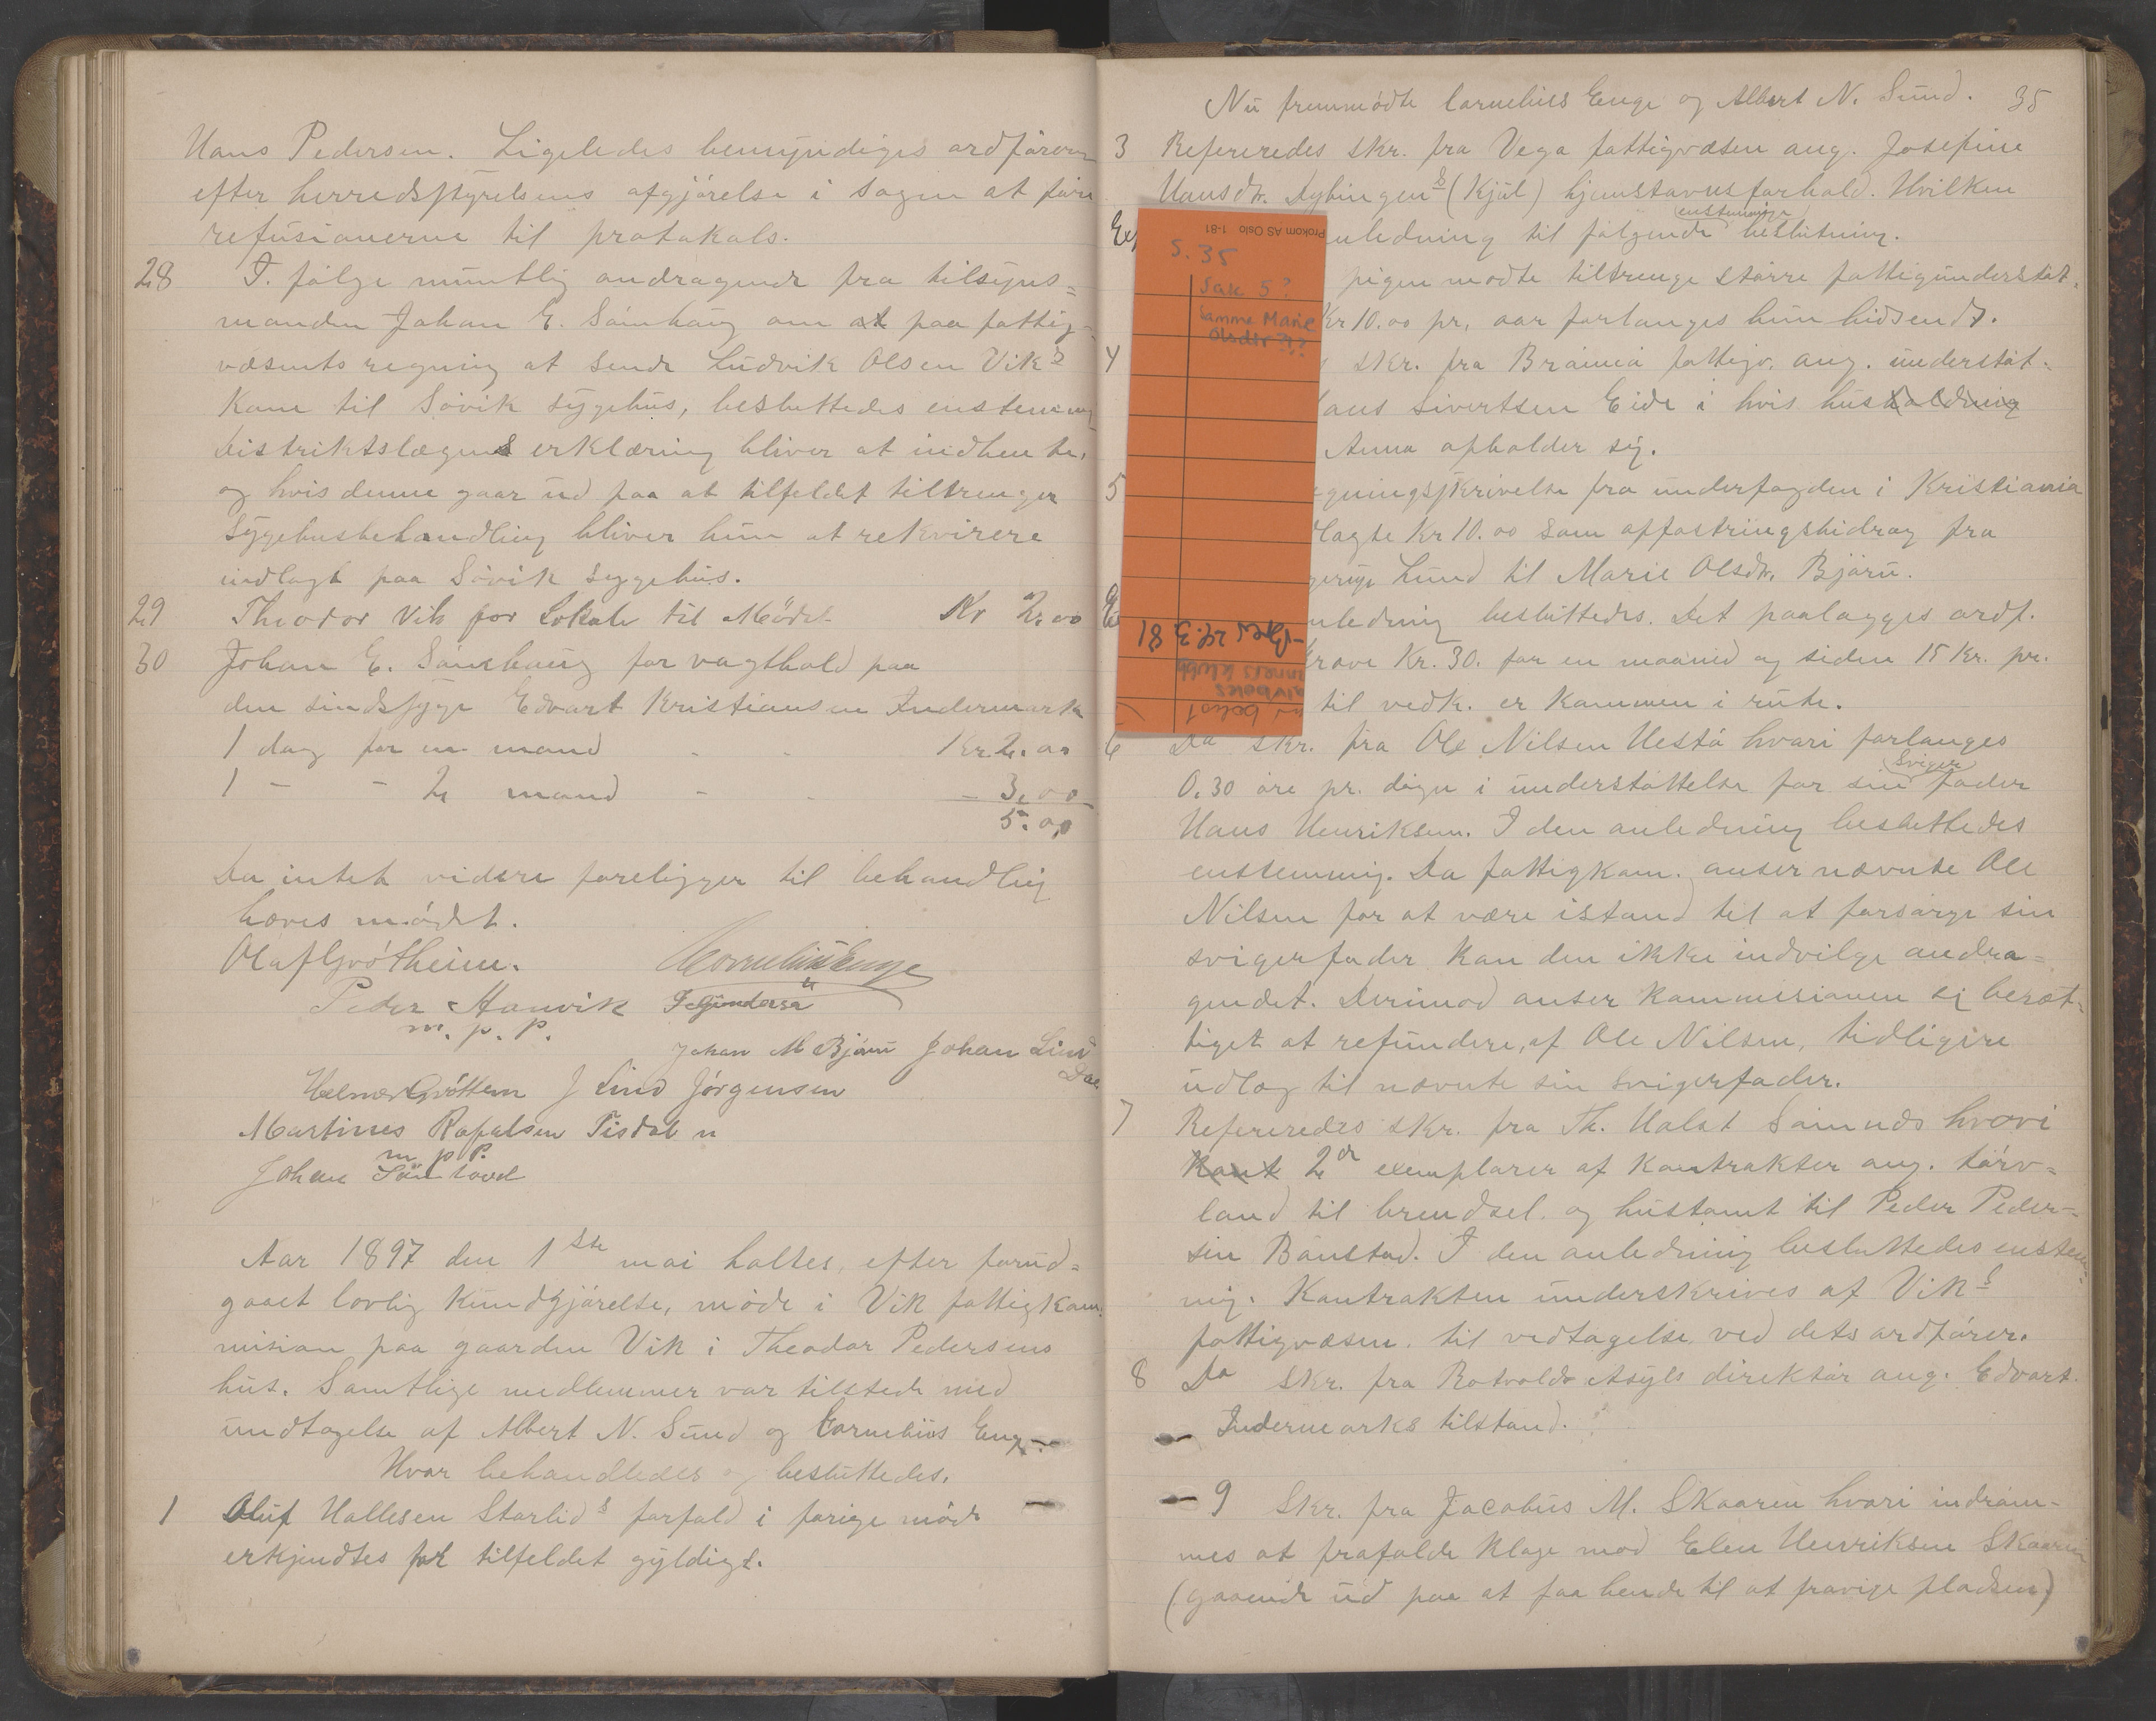 Hans Pedersen. Ligeledes bemyndiges ordføreren
efter herredsstyrelsens afgjørelse i sagen at føre
refusionerne til protokols.
28 I følge muntlig andragende fra tilsyns=
manden Johan E. Sømhaug om at paa fattig-
væsents regning at sende Ludvik Olsen Viks
Kone til Søvik sygehus, besluttedes enstemmig
Distriktslægens erklæring bliver at indhente,
og hvis denne gaar ud paa at tilfeldet tiltrenger
Sygehusbehandling bliver hun at rekvirere
indlagt paa Søvik sygehus.
29 Theodor Vik for Lokale til Mödet Kr 2.00
30 Johan E. Sömhaug for vagthold paa
den sindssyge Edvart Kristiansen Indermark
1 dag for en mand - - Kr 2.00
1 - - 2 mand - - - 3.00
5.00
Da intet videre foreligger til behandling
hæves mødet.
Olaf Grøtheim. Cornelius Enge
Peder Hanvik
m. p. P.
Johan M Bjørn Johan Lund
J Lind Jørgensen
Martines Rafalsen Tisdal
m p P.
Johan
Aar 1897 den 1ste mai holtes, efter forud=
gaaet lovlig kundgjørelse, møde i Vik fattigkom
mision paa gaarden Vik i Theodor Pedersens
hus. Samtlige medlemmer var tilstede med
undtagelse af Albert N. Sund og Cornelius Enge.
Hvor behandledes og besluttedes.
1 Oluf Hallesen Storlids forfald i forige møde
erkjendtes for tilfeldet gyldigt.
Nu fremmødte Cornelius Enge og Albert N. Sund. 35
3 Refereredes skr. fra Vega fattigvæsen ang. Josefine
Hansdr. Dybingens (Kjul) hjemstavnsforhold. Hvilken
enstemmige
nledning til følgende beslutning.
pigen maatte tiltrenge større fattigunderstøt-
Kr 10.00 pr. aar forlanges hun hidsendt.
4 skr. fra Brønnø fattigv. ang. understøt-
Hans Sivertsen Eide i hvis husholdning
Anna opholder sig.
5 gningsskrivelse fra underfogden i Kristiania
lagte Kr 10.00 som opfostringsbidrag fra
Lund til Marie Olsdtr. Bjørn.
nledning besluttedes. Det paalægges ordf.
Kræve Kr. 30. for en maaned og siden 15 Kr. pr.
til vedk. er kommen i rute.
6 Do skr. fra Ole Nilsen Hestø hvori forlanges
sviger
0.30 øre pr. døgn i understøttelse for sin fader
Hans Henriksen. I den anledning besluttedes
enstemmig. Da fattigkom. anser nævnte Ole
Nilsen for at være istand til at forsørge sin
svigerfader kan den ikke indvilge andra=
gendet. Derimod anser Kommisionen sig beræt-
tiget at refundere, af Ole Nilsen, tidligere
udlæg til nævnte sin svigerfader.
7 Refereredes skr. fra Th. Halst Sømnes hvori
Kont 2de exemplarer af kontrakter ang. tørv=
land til brendsel og hustomt til Peder Peder=
sen Bønstad. I den anledning besluttedes enstem-
mig. Kontrakten underskrives af Viks
fattigvæsen til vedtagelse ved dets ordfører.
8 Do skr. fra Rotvolds Asyls direktør ang. Edvart
Indermarks tilstand.
9 Skr. fra Jacobus M. Skaaren hvori indrøm-
mes at frafalde klage mod Elen Henriksen Skaaren
(gaaende ud paa at faa hende til at fravige pladsen)
Prokom AS Oslo 1-81
S. 35
Sak 5?
Samme Marie
Olsdtr??